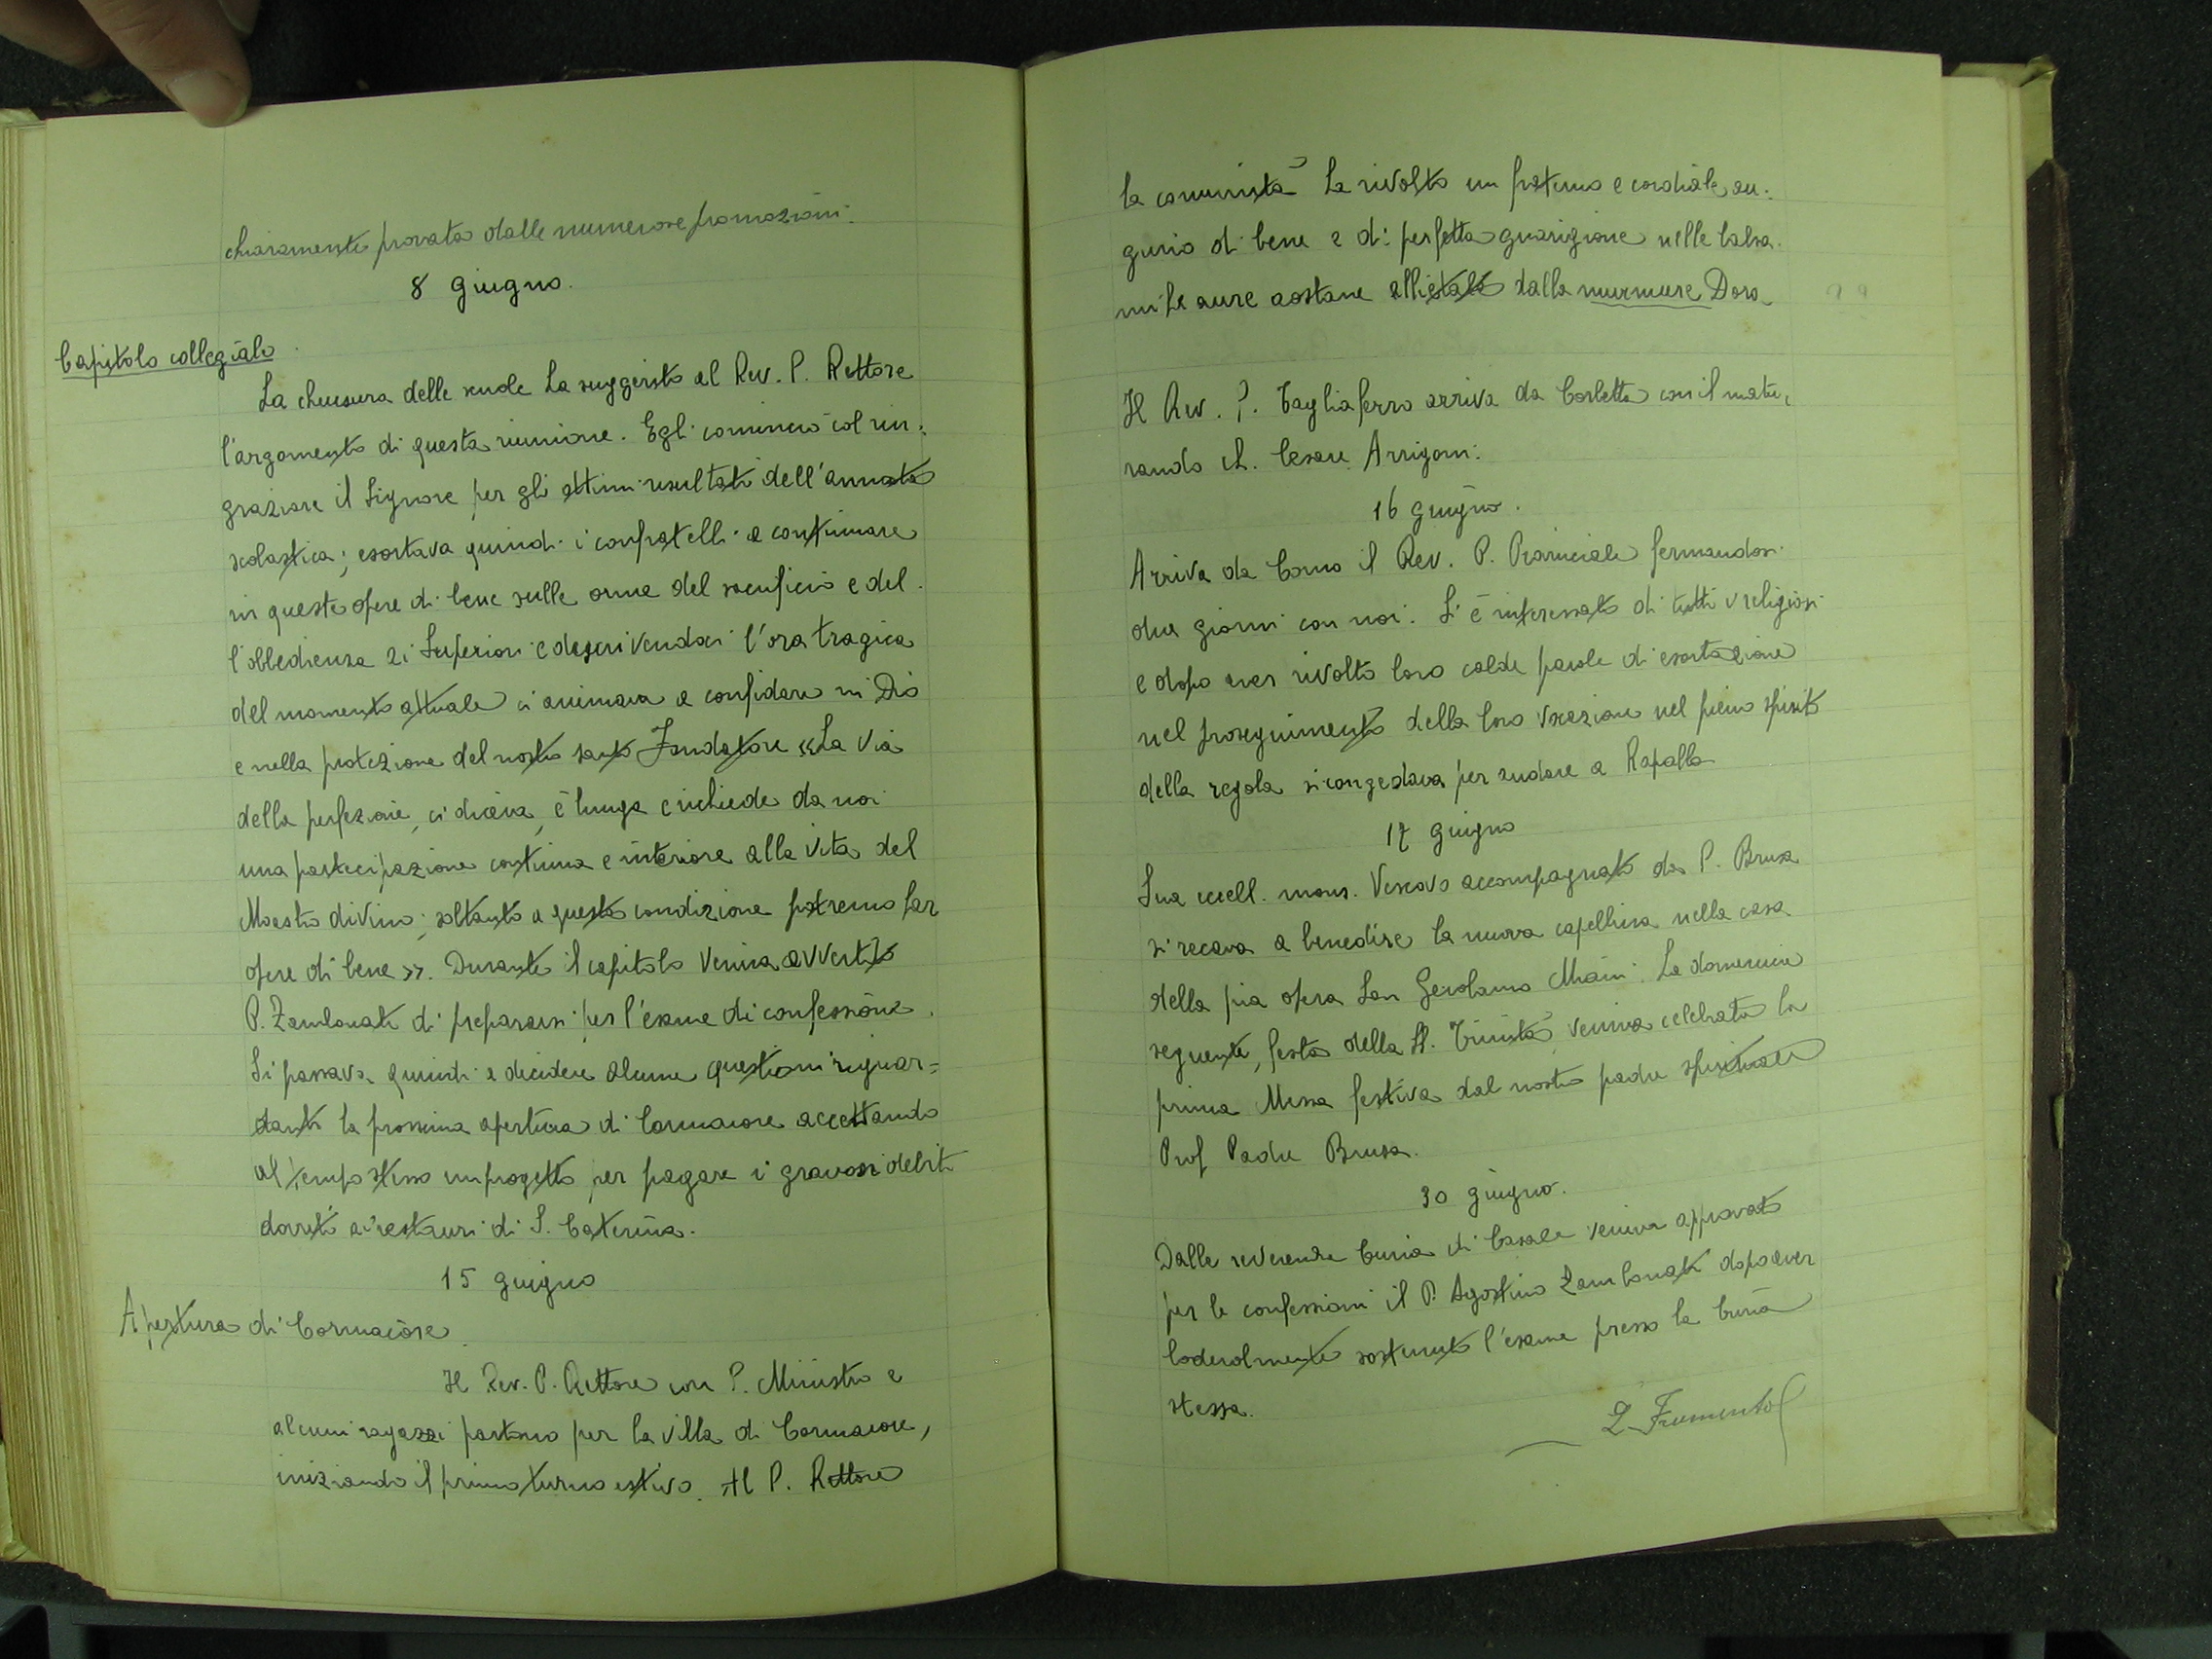 chiaramente provata dalle numerose promozioni.
8 giugno.
Capitolo collegiale
La chiusura delle scuole ha suggerito al Rev. P. Rettore
l'argomento di questa riunione. Egli cominciò col rin-
graziare il Signore per gli ottimi resultati dell'annata
scolastica; esortava quindi i confratelli a continuare
in queste opere di bene sulle orme del sacrificio e del-
l'obbedienza ai Superiori e descrivendoci l'ora tragica
del momento attuale ci animava a confidare in Dio
e nella protezione del nostro santo Fondatore «La via
della perfezione, ci diceva, è lunga e richiede da noi
una partecipazione continua e interiore alla vita del
Maestro divino; soltanto a questa condizione potremo far
opere di bene». Durante il capitolo veniva avvertito
P. Zambonati di prepararsi per l'esame di confessione.
Si passava quindi a decidere alcune questioni riguar=
danti la prossima apertura di Cormaiore accettando
al tempo stesso un progetto per pagare i gravosi debiti
dovuti ai restauri di S. Caterina.
15 giugno
Apertura di Cormaiore.
Il Rev. P. Rettore con P. Ministro e
alcuni ragazzi partono per la villa di Cormaiore,
iniziando il primo turno estivo. Al P. Rettore
la comunità ha rivolto un fraterno e cordiale au-
gurio di bene e di perfetta guarigione nelle balsa-
miche aure aostane allietate dalla murmure Dora
Il Rev. P. Tagliaferro arriva da Corbetta con il matu-
rando ch. Cesare Arrigoni.
16 giugno.
Arriva da Como il Rev. P. Provinciale fermandosi
due giorni con noi. S'è interessato di tutti i religiosi
e dopo aver rivolto loro calde parole di esortazione
nel proseguimento della loro vocazione nel pieno spirito
della regola si congedava per andare a Rapallo
17 giugno
Sua eccell. mons. Vescovo accompagnato da P. Brusa
si recava a benedire la nuova capellina nella casa
della pia opera San Gerolamo Miani. La domenica
seguente, festa della SS. Trinità, veniva celebrata la
prima Messa festiva dal nostro padre spirituale
Prof Padre Brusa.
30 giugno.
Dalla reverenda Curia di Casale veniva approvato
per le confessioni il P. Agostino Zambonati dopo aver
lodevolmente sostenuto l'esame presso la Curia
stessa.
Frumento